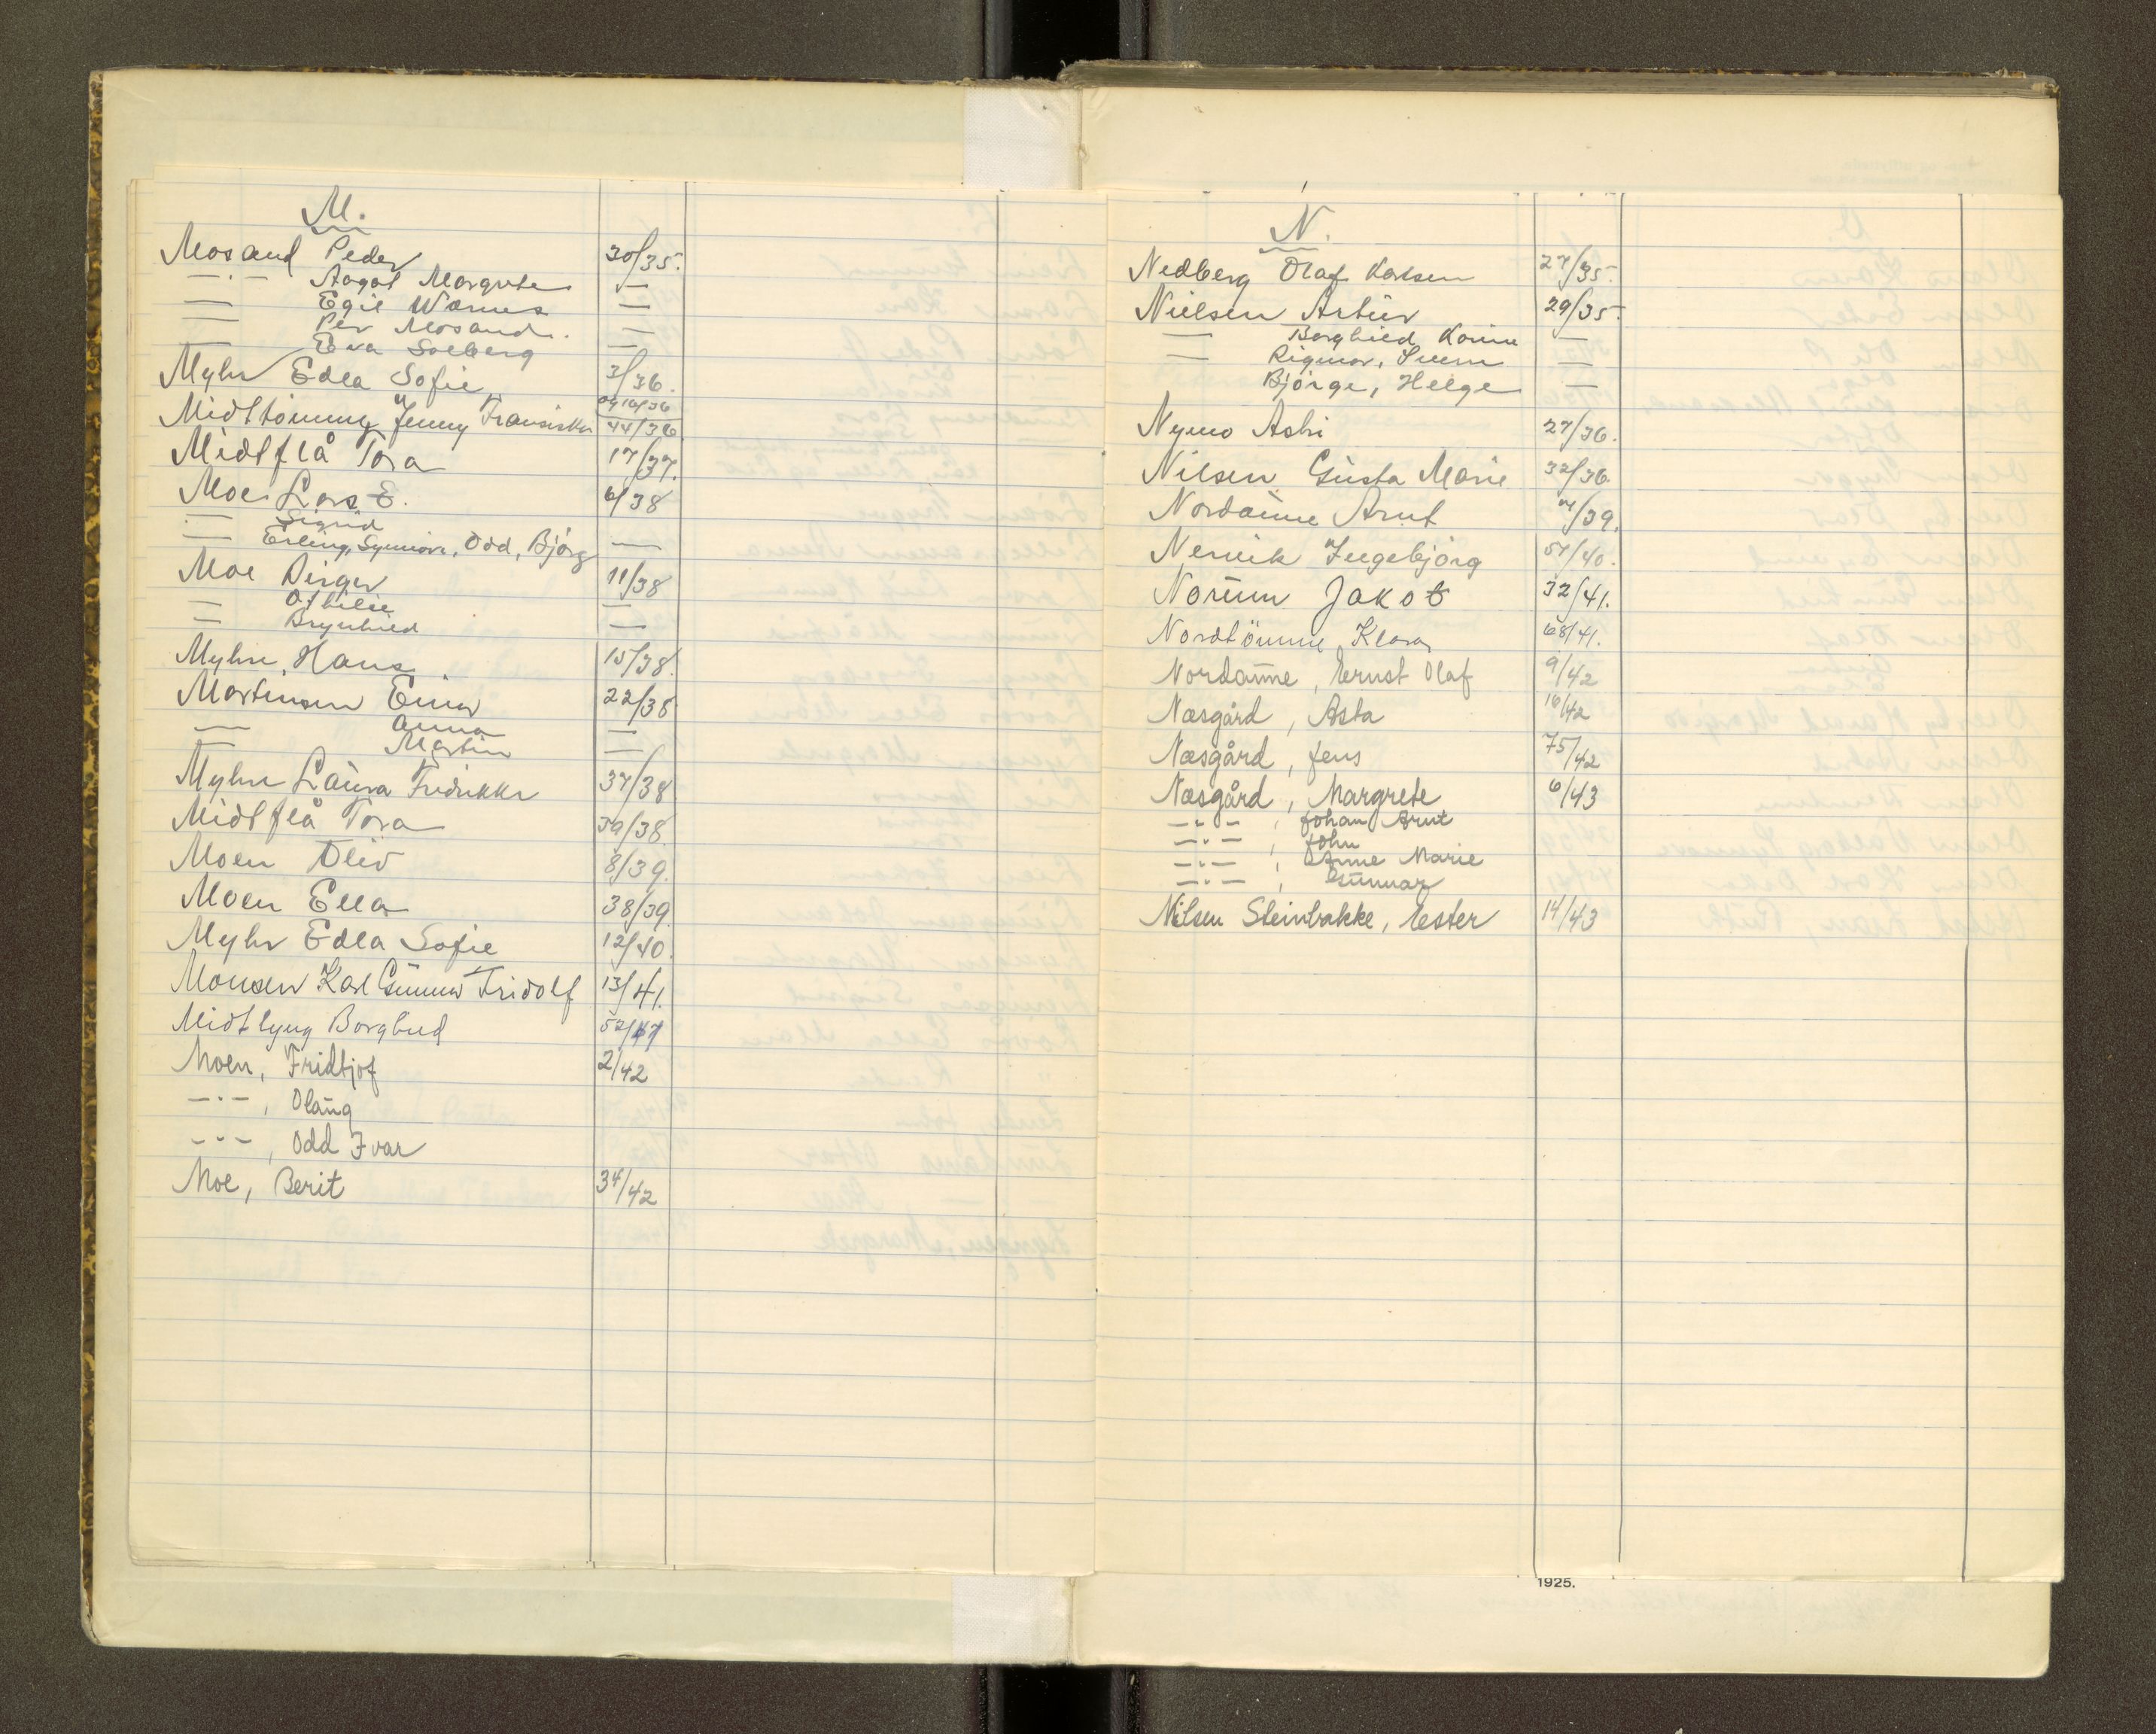 M.
Mosand Peder 30/35.
— " — Aagot Margrete —
— Egil Warnes —
— Per Mosand. —
— Eva Solberg —
Myhr Edla Sofie 3/36.
Midttömme Jenny Fransiska og 16/36 44/36
Midtflå Tora 17/37.
Moe Lars E. 6/38
— Sigrid
— Erling, Synnöve, Odd, Björg —
Moe Birger 11/38
— Othilie —
— Brynhild —
Myhre, Hans 15/38.
Martinsen Einar 22/38
— Anna —
— Martin —
Myhre Laura Fredrikke 37/38
Midtflå Tora 39/38.
Moen Oliv 8/39.
Moen Ella 38/39
Myhr Edla Sofie 12/40.
Monsen Karl Gunnar Fridolf 13/41.
Midtlyng Borghild 52/41
Moen, Fridtjof 2/42
— " —, Olaug
— " —, Odd Ivar
Moe, Berit 34/42
N.
Nedberg Olaf Karlsen 27/35.
Nielsen Artur 29/35.
— Borghild Karine —
— Rigmor, Svenn —
Björge, Helge —
Nymo Asbi 27/36.
Nilsen Gusta Marie 32/36.
Nordaune Arnt 4/39.
Nervik Ingebjörg 57/40.
Norum Jakob 32/41.
Nordtömme Klara 68/41.
Nordaune, Ernst Olaf 9/42
Næsgård, Asta 16/42
Næsgård, Jens 75/42
Næsgård, Margrete 6/43
— " —, Johan Arnt
— " —, John
— " —, Anne Marie
— " —, Gunnar
Nilsen Steinbakke, Ester 14/43
1925.